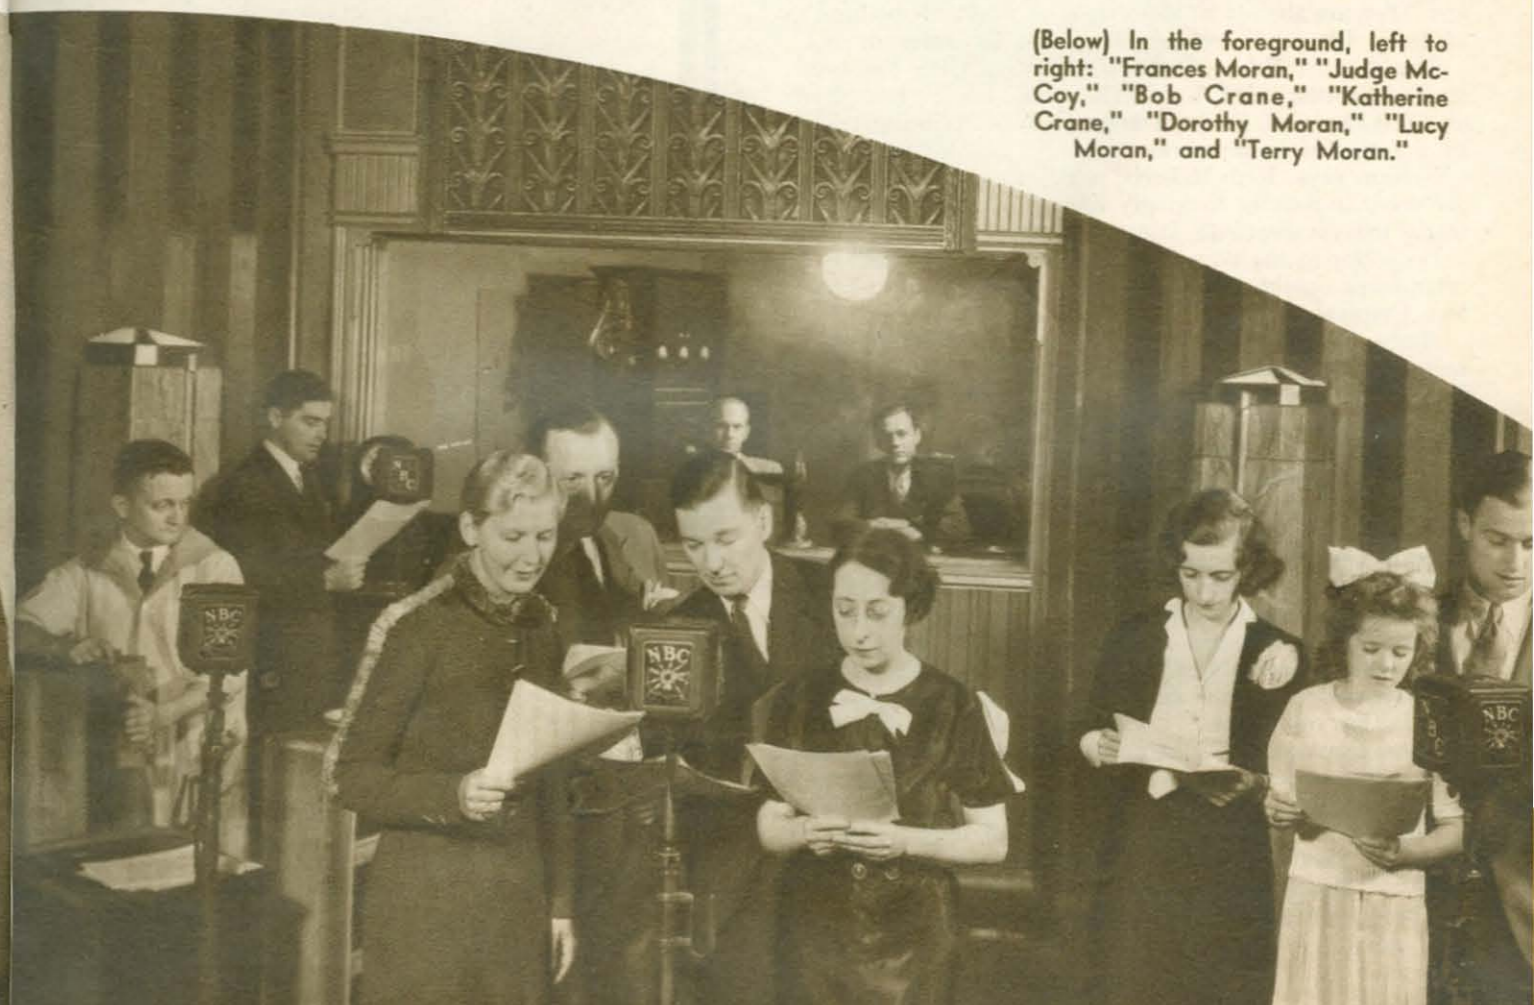 (Below) In the foreground, left to
right: "Frances Moran," "Judge Mc-
Coy," "Bob Crane," "Katherine
Crane," "Dorothy Moran," "Lucy
Moran," and "Terry Moran."
NBC
NBC
NBC
NBC
NBC